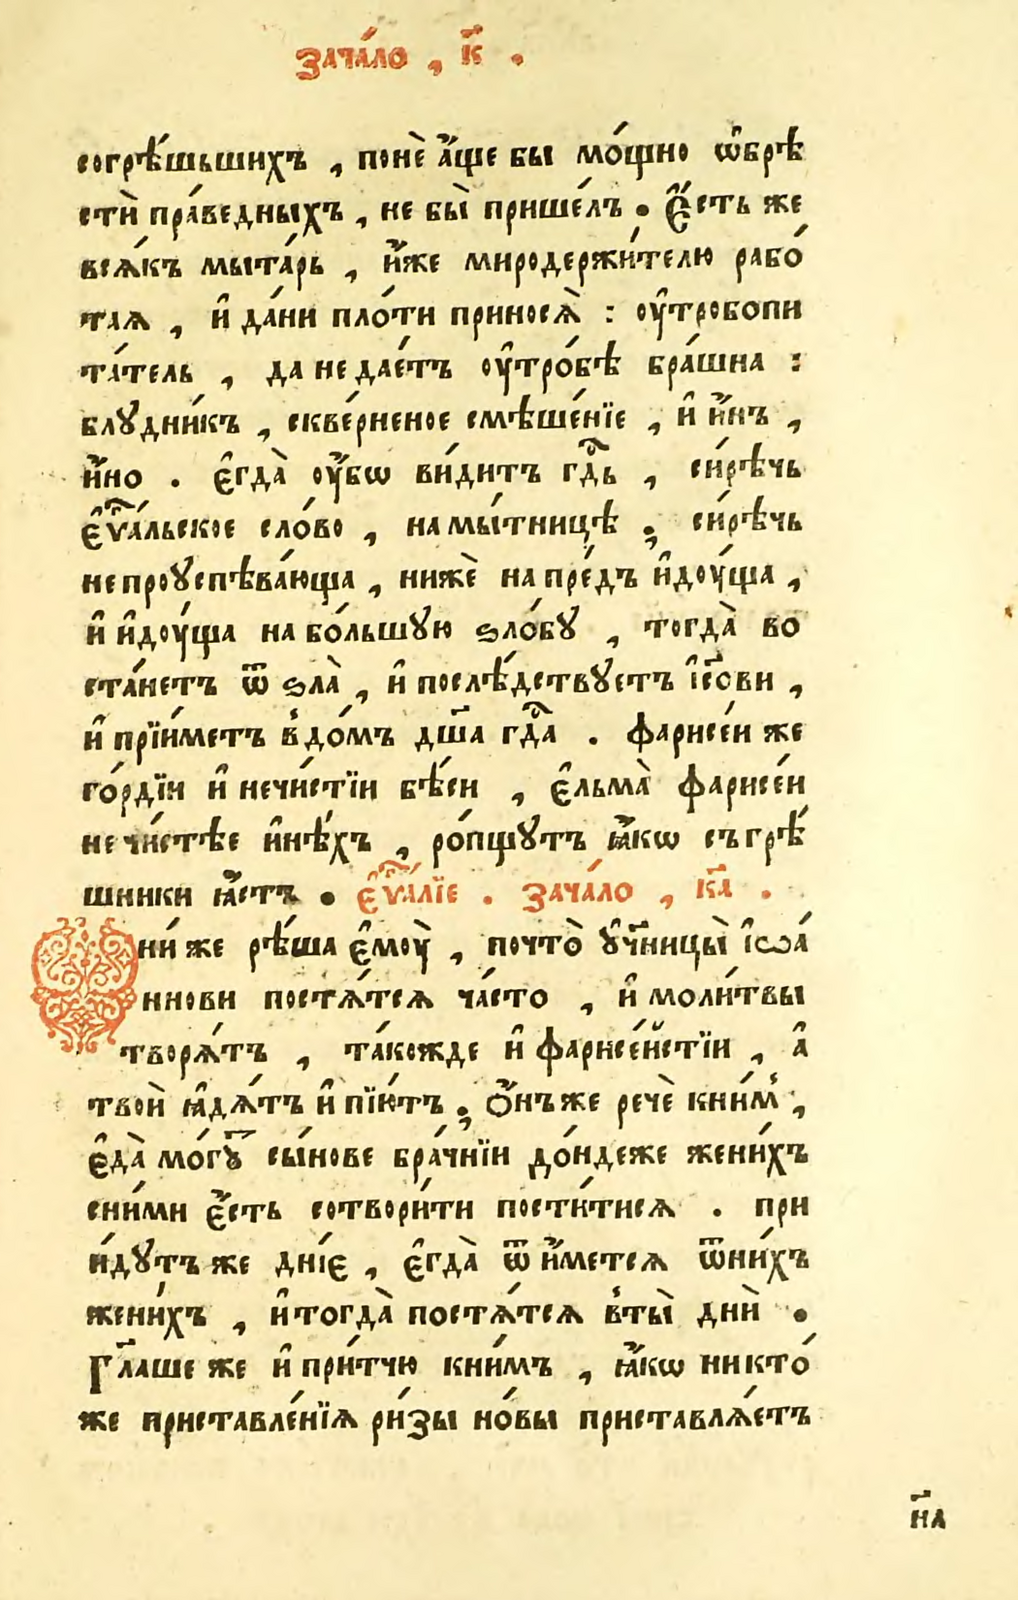 зача́ло , к҃ .
согрѣ́шьшихъ , понѐ а҆́ще бы мо́щно ѡ҆брѣ
стѝ пра́ведныхъ , не бы̀ прише́лъ . Є҆́сть же
всѧ́къ мыта́рь , и҆́же миродержи́телю рабо́
таѧ , и҆ да́ни пло́ти приносѧ̀ : оу҆тробопи
та́тель , да не дае́тъ оу҆тро́бѣ бра́шна :
блꙋдни́къ , скве́рненое смѣше́нїе , и҆ и҆́нъ ,
и҆́но . є҆гда̀ оу҆́бѡ ви́дитъ гдⷭ҇ь , си́рѣчь
є҆ѵⷢ҇а́льское сло́во , на мы́тницѣ , си́рѣчь
не проꙋспѣва́юща , нижѐ на пре́дъ и҆доу́ща ,
и҆ и҆доу́ща на бо́льшꙋю ѕло́бꙋ , тогда̀ во
ста́нетъ ѿ ѕла̀ , и҆ послѣ́дствꙋетъ і҆с҃ови ,
и҆ прїи́метъ в̾до́мъ дш҃а гдⷭ҇а . фарисе́и же
го́рдїи и҆ нечи́стїи бѣ́си , є҆льма̀ фарисе́и
не чи́стѣе и҆нѣ́хъ , ро́пщꙋтъ ꙗ҆́кѡ съ грѣ́
шники ꙗ҆́стъ . є҆ѵⷢ҇а́лїе . зача́ло , к҃а .
Ѻни́ же рѣ́ша є҆моу̀ , почто̀ ᲂу҆ч҃ницы̀ і҆ѡа́
ннови постѧ́тсѧ ча́сто , и҆ моли́твы
творѧ́тъ , та́кожде и҆ фарисе́йстїи , а҆
твоѝ ꙗ҆дѧ́тъ и҆ пїю́тъ . Ѻ҆́нъ же речѐ кни́м̾ ,
є҆да̀ мо́гꙋⷮ сы́нове бра́чнїи до́ндеже жени́хъ
сни́ми є҆́сть сотвори́ти пости́тисѧ . при
и́дꙋтъ же днїе , є҆гда̀ ѿ и҆́метсѧ ѿни́хъ
жени́хъ , и҆ тогда̀ постѧ́тсѧ в̾ты̀ днѝ .
Гл҃аше же и҆ при́тчю кни́мъ , ꙗ҆́кѡ никто́
же приставле́нїѧ ри́зы но́вы приставлѧ́етъ
н҃а